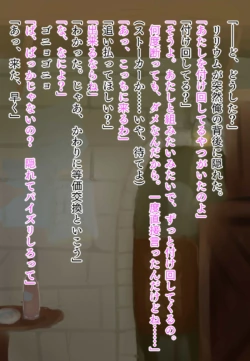 「――ど、どうした？」
リリウムが突然俺の背後に隠れた。
「あたしを付け回してるやつがいたのよ」
「付け回してる？」
「そうよ。あたしと組みたいみたいで、ずっと付け回してくるの。
何度断っても、ダメなんだから。一度直接言ったんだけどね……」
（ストーカーか……いや、待てよ）
「あっ、こっちに来るわ」
「追い払ってほしい？」
「出来るならね」
「わかった。じゃあ、かわりに等価交換といこう」
「な、なによ？」
ゴニョゴニョ
「は、ばっかじゃないの？　隠れてパイズリしろって」
「あっ、来た、早く」